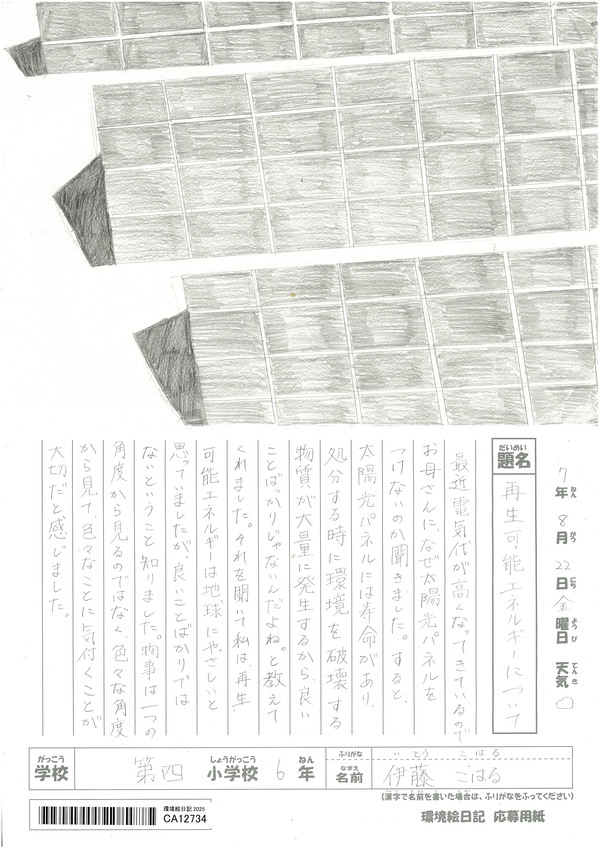 7年 8月 22日 金曜日 天気 ○
ねん がつ にち ようび てんき
だいめい
題名
再生可能エネルギーについて
最近電気代が高くなってきているので
お母さんに、なぜ太陽光パネルを
つけないのか聞きました。すると、
太陽光パネルには寿命があり、
処分する時に環境を破壊する
物質が大量に発生するから、良い
ことばっかりじゃないんだよね。と教えて
くれました。それを聞いて私は、再生
可能エネルギーは地球にやさしいと
思っていましたが、良いことばかりでは
ないということ知りました。物事は一つの
角度から見るのではなく、色々な角度
から見て、色々なことに気付くことが
大切だと感じました。
がっこう しょうがっこう ねん
学校 第四 小学校 6年
ふりがな いとう こはる
なまえ
名前 伊藤 こはる
(漢字で名前を書いた場合は、ふりがなをふってください)
環境絵日記 2025
CA12734
環境絵日記 応募用紙